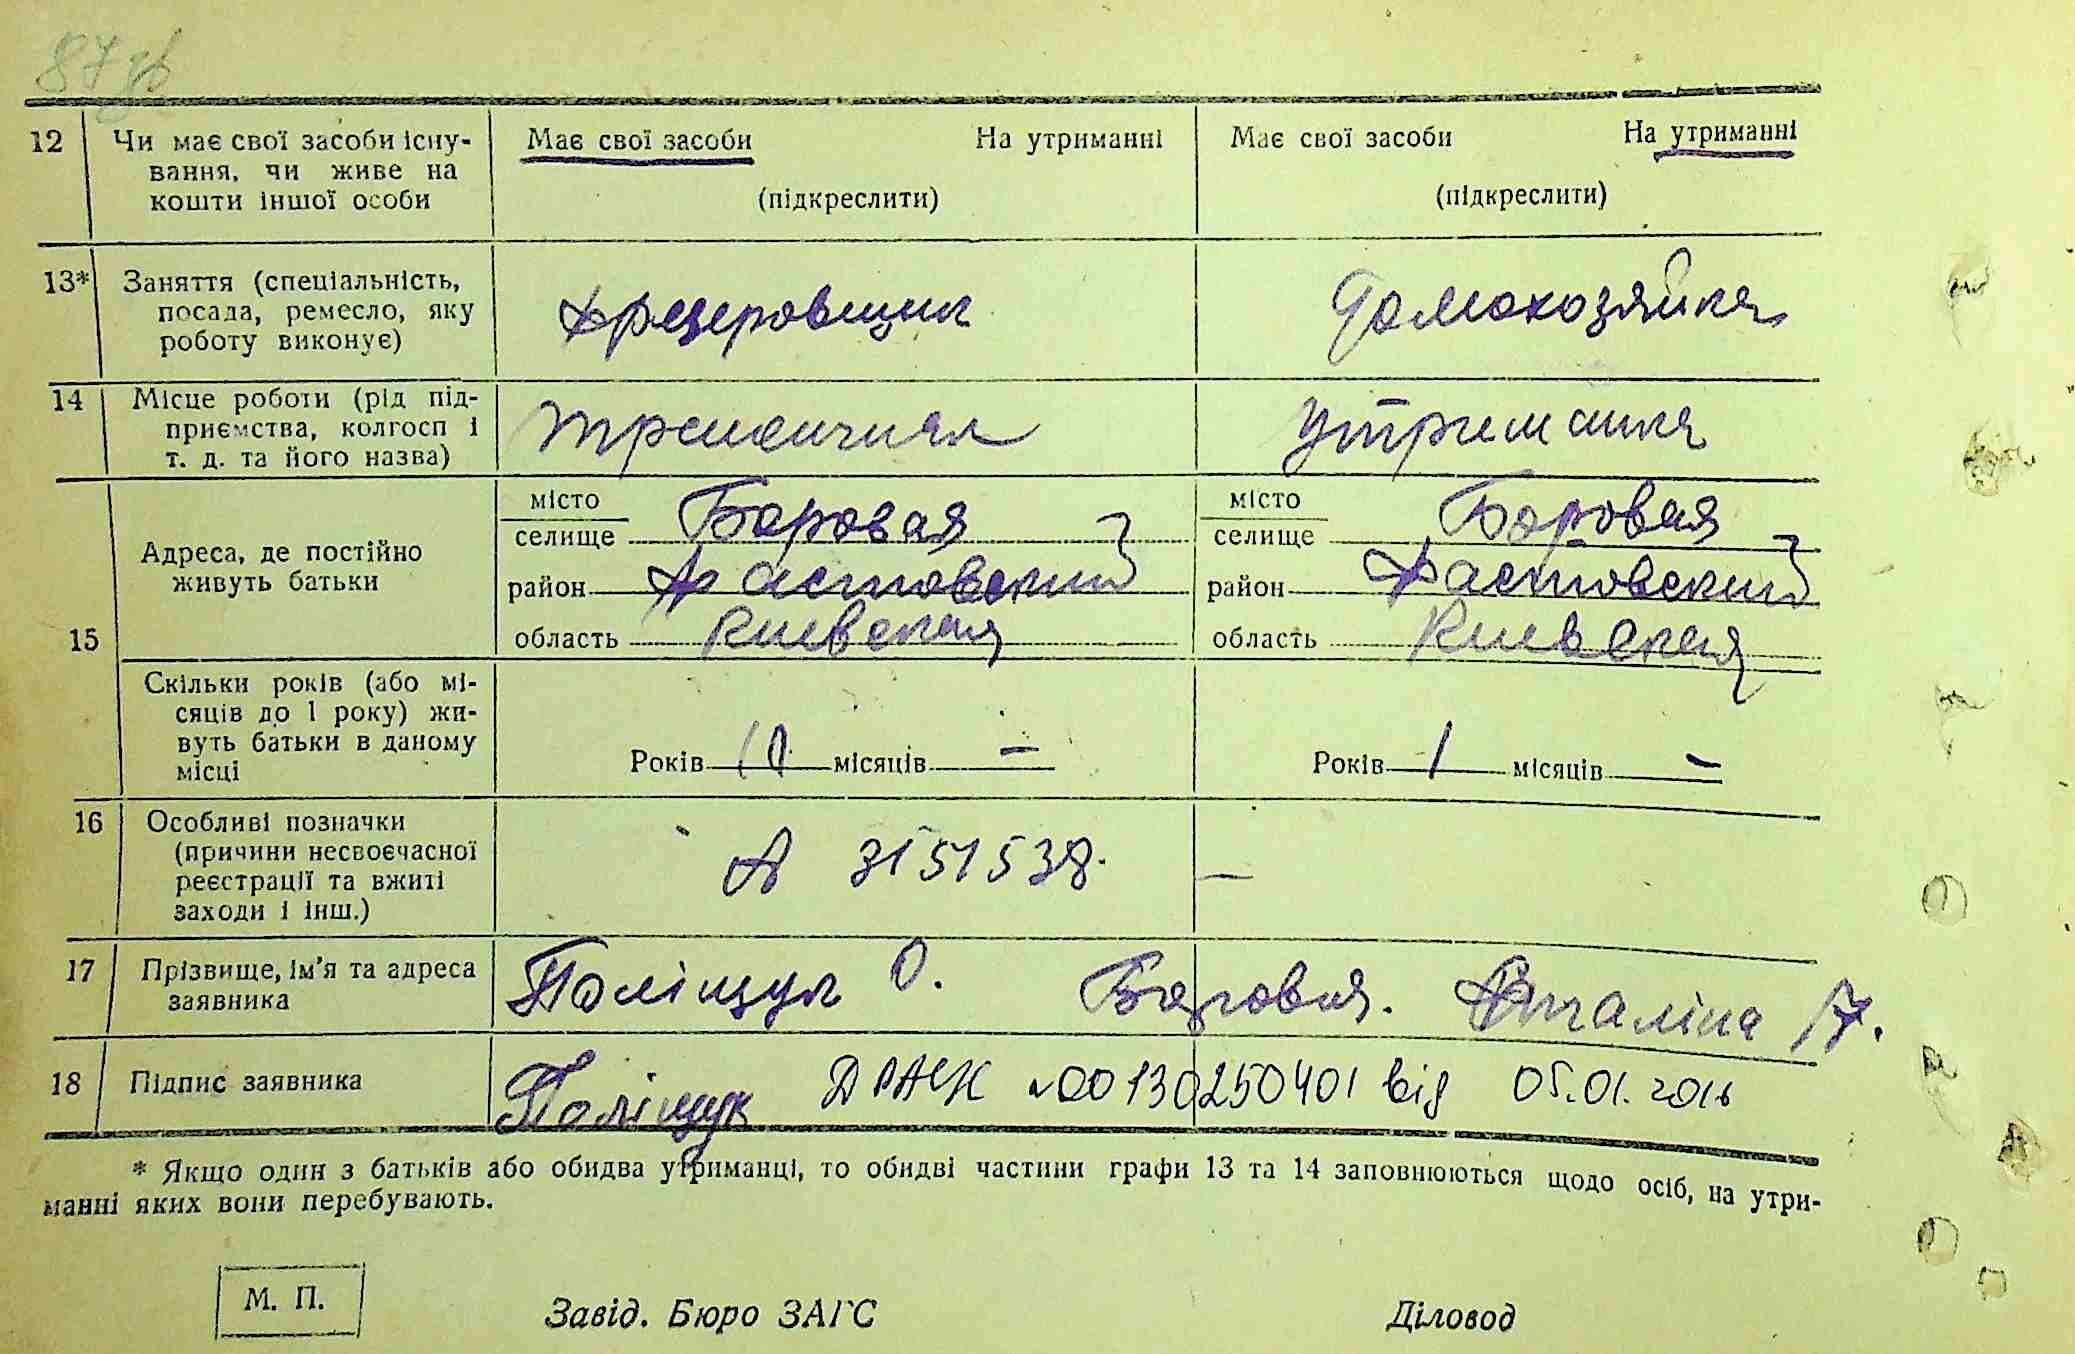 87зв
12 Чи має свої засоби існу- Має свої засоби На утриманні Має свої засоби На утриманні
вання, чи живе на
кошти іншої особи (підкреслити) (підкреслити)
13* Заняття (спеціальність,
посада, ремесло, яку фрезеровщик Домохозяйка
роботу виконує)
14 Місце роботи (рід під-
приємства, колгосп і утриманка
т. д. та його назва)
місто Боровая місто Боровая
селище селище
Адреса, де постійно
живуть батьки район Фастовский район Фастовский
15 область Киевская область Киевская
Скільки років (або мі-
сяців до 1 року) жи-
вуть батьки в даному Років 10 місяців – Років 1 місяців –
місці
16 Особливі позначки
(причини несвоєчасної А 3151538. –
реєстрації та вжиті
заходи і інш.)
17 Прізвище, ім'я та адреса Поліщук О. Боровая. Сталіна 17.
заявника
18 Підпис заявника Поліщук ДРАСК №00130250401 від 05.01.2016
* Якщо один з батьків або обидва утриманці, то обидві частини графи 13 та 14 заповнюються щодо осіб, на утри-
манні яких вони перебувають.
М. П. Завід. Бюро ЗАГС Діловод